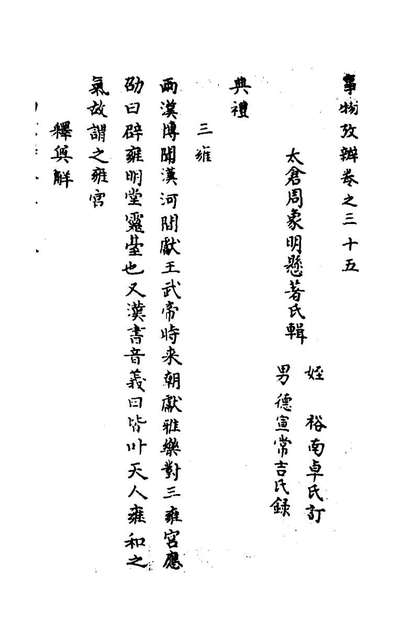 事物攷辨卷之三十五
太倉周象明懸著氏輯
姪 裕南卓氏訂
男 德宣常吉氏錄
典禮
三雍
兩漢博聞漢河間獻王武帝時来朝獻雅樂對三雍宮應
劭曰辟雍明堂靈臺也又漢書音義曰皆叶天人雍和之
氣故謂之雍宮
釋奠觧